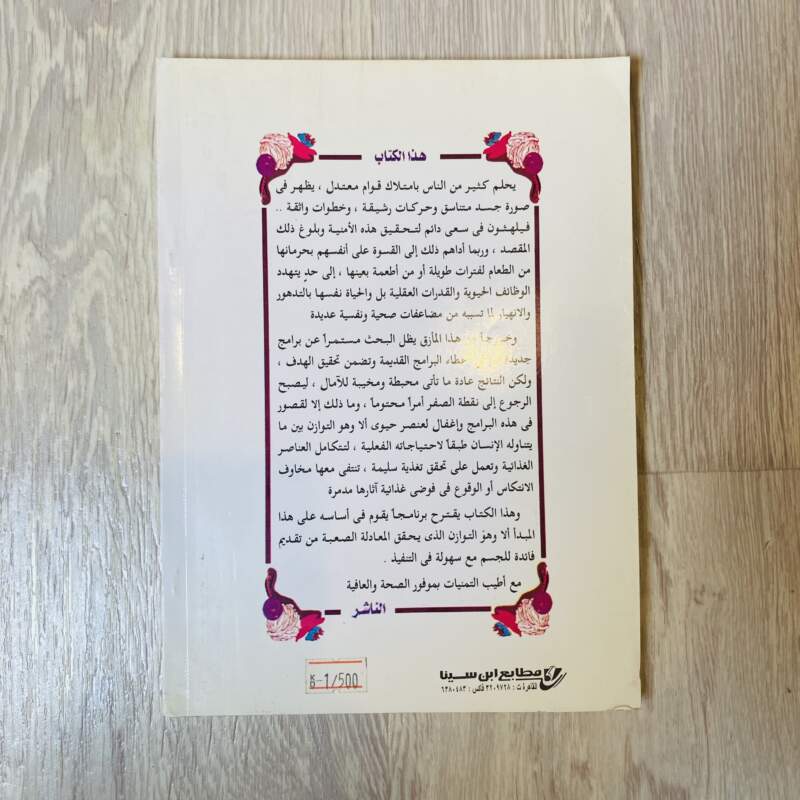 هذا الكتاب
يحلم كثير من الناس بامتلاك قوام معتدل ، يظهر فى
صورة جسد متناسق وحركات رشيقة ، وخطوات واثقة ..
فيلهثون فى سعى دائم لتحقيق هذه الأمنية وبلوغ ذلك
المقصد ، وربما أداهم ذلك إلى القسوة على أنفسهم بحرمانها
من الطعام لفترات طويلة أو من أطعمة بعينها ، إلى حدٍ يتهدد
الوظائف الحيوية والقدرات العقلية بل والحياة نفسها بالتدهور
والانهيار لما تسببه من مضاعفات صحية ونفسية عديدة
هذا المأزق يظل البحث مستمراً عن برامج
أخطاء البرامج القديمة وتضمن تحقيق الهدف ،
ولكن النتائج عادة ما تأتى محبطة ومخيبة للآمال ، ليصبح
الرجوع إلى نقطة الصفر أمراً محتوماً ، وما ذلك إلا لقصور
فى هذه البرامج وإغفال لعنصر حيوى ألا وهو التوازن بين ما
يتناوله الإنسان طبقاً لاحتياجاته الفعلية ، لتتكامل العناصر
الغذائية وتعمل على تحقق تغذية سليمة ، تنتفى معها مخاوف
الانتكاس أو الوقوع فى فوضى غذائية آثارها مدمرة
وهذا الكتاب يقترح برنامجاً يقوم فى أساسه على هذا
المبدأ ألا وهو التوازن الذى يحقق المعادلة الصعبة من تقديم
فائدة للجسم مع سهولة فى التنفيذ .
مع أطيب التمنيات بموفور الصحة والعافية
الناشر
مطابع ابن سينا
القاهرة ت : ٣٢٠٩٧٢٨ فاكس : ٦٣٨٠٤٨٣
1/500